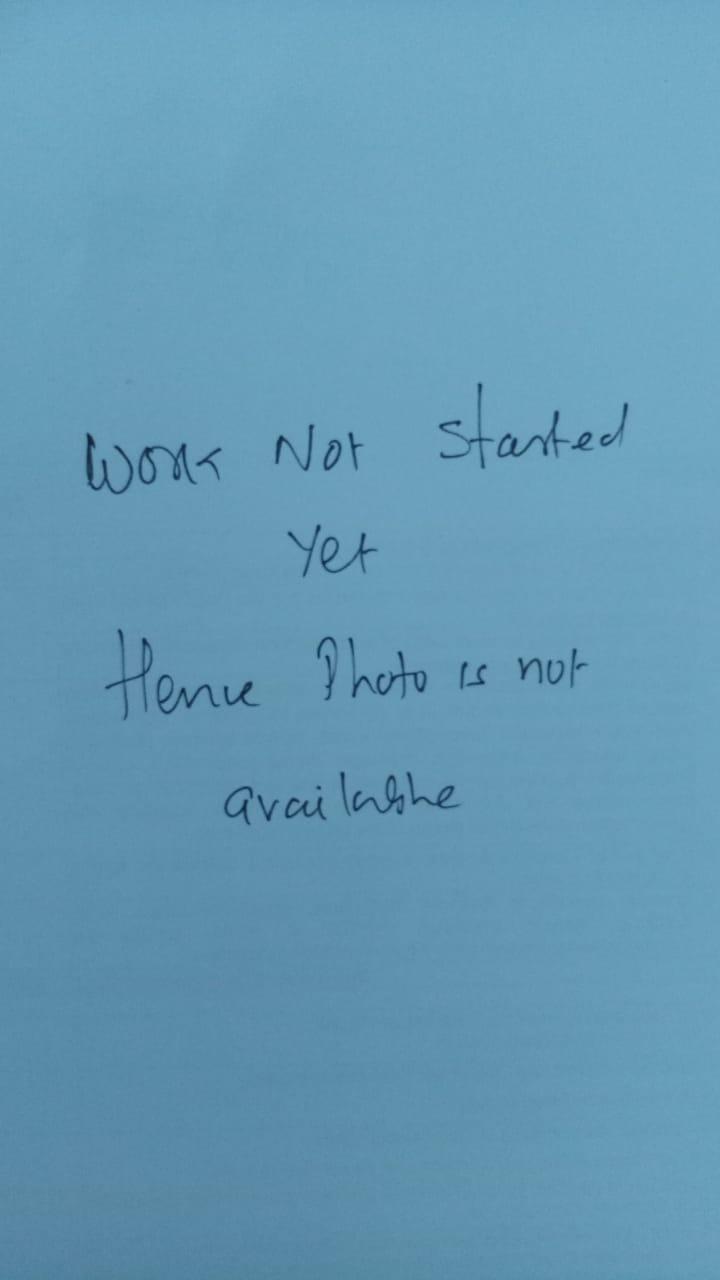 Work Not Started
Yet
Hence Photo is not
available